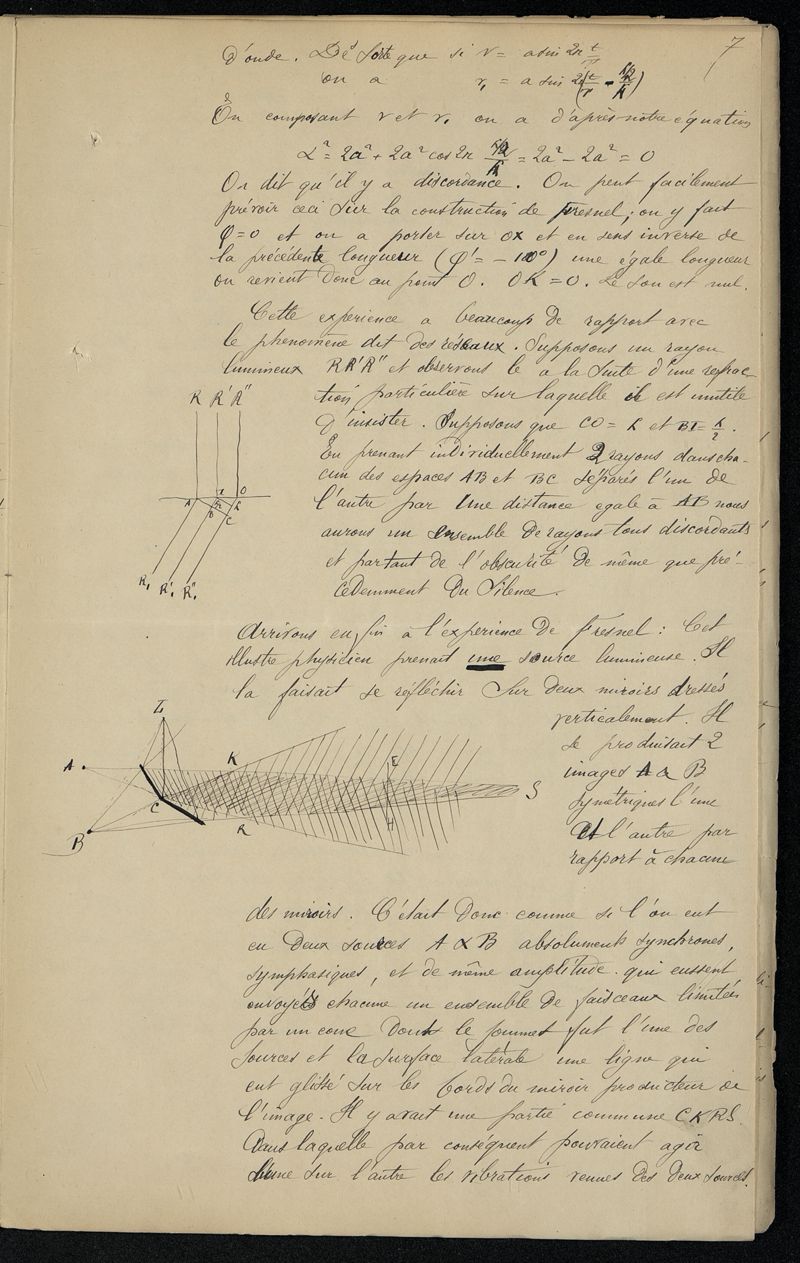 7
d'onde. De sorte que si v = a sin 2π t/T
on a v₁ = a sin 2π(t/T - λ/2/λ)
En composant v et v₁ on a d'après notre équation
α² = 2a² + 2a² cos 2π λ/2/λ = 2a² - 2a² = 0
On dit qu'il y a discordance. On peut facilement
prévoir ceci sur la construction de Fresnel; on y fait
φ=0 et on a porter sur OX et en sens inverse de
la précédente longueur (φ' = - 180°) une égale longueur
on revient donc au point O. OK = 0. Le son est nul.
Cette experience a beaucoup de rapport avec
le phenomène dit des réseaux. Supposons un rayon
lumineux RR'R'' et observons le a la suite d'une refrac
tion particulière sur laquelle il est inutile
d'insister. Supposons que CO = λ et BI = λ/2.
En prenant individuellement 2 rayons dans cha-
cun des espaces AB et BC séparés l'un de
l'autre par une distance egale à AB nous
aurons un ensemble de rayons tous discordants
et partant de l'obscurité de même que pré-
cedemment du silence.
R R' R''
A I O
B C
R₁ R'₁ R''₁
Arrivons enfin à l'experience de Fresnel : Cet
illustre physicien prenait une source lumineuse. Il
la faisait se réfléchir sur deux miroirs dressés
verticalement. Il
se produisait 2
images A & B
symétriques l'une
et l'autre par
rapport à chacune
L
A K E
C S
B R H
des miroirs. C'était donc comme si l'on eut
eu deux sources A & B absolument synchrones,
symphasiques, et de même amplitude qui eussent
envoyés chacune un ensemble de faisceaux limités
par un cone dont le sommet fut l'une des
sources et la surface latérale une ligne qui
eut glissé sur les bords du miroir producteur de
l'image. Il y avait une partie commune CKRS
dans laquelle par conséquent pouvaient agir
l'une sur l'autre les vibrations venues des deux sources.